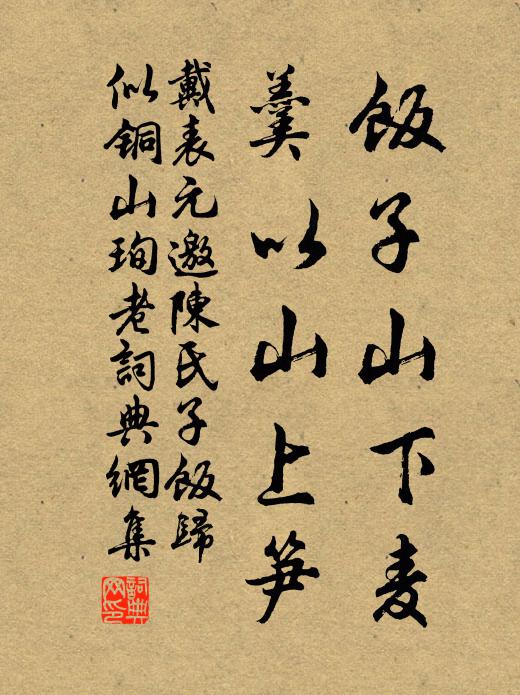 飯子山下麦
羹以山上笋
戴表元邀陳氏子飯歸
似銅山珣老詞典網集
詞典网印